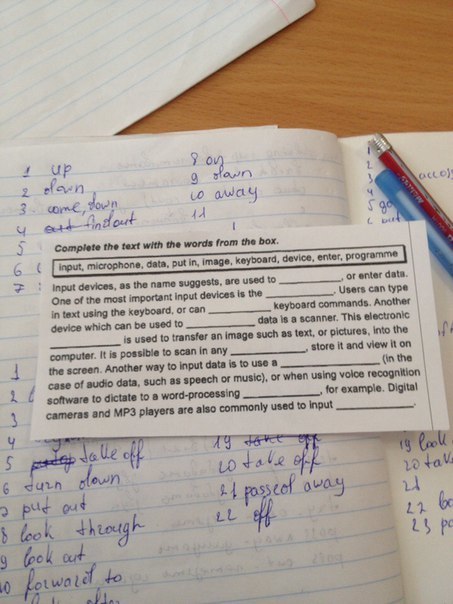 1 up
2 down
3 come, down
4 find out
5
6
7
8 on
9 down
10 away
11
Complete the text with the words from the box.
input, microphone, data, put in, image, keyboard, device, enter, programme
Input devices, as the name suggests, are used to ____________, or enter data.
One of the most important input devices is the ____________. Users can type
in text using the keyboard, or can ____________ keyboard commands. Another
device which can be used to ____________ data is a scanner. This electronic
____________ is used to transfer an image such as text, or pictures, into the
computer. It is possible to scan in any ____________, store it and view it on
the screen. Another way to input data is to use a ____________ (in the
case of audio data, such as speech or music), or when using voice recognition
software to dictate to a word-processing ____________, for example. Digital
cameras and MP3 players are also commonly used to input ____________.
1
2
3
4
5 take off
6 turn down
7 put out
8 look through
9 look out
10 forward to
19 take off
20 take off
21 passed away
22 off
1
2
3
4
5 go
19 look
20 take
21
22
23